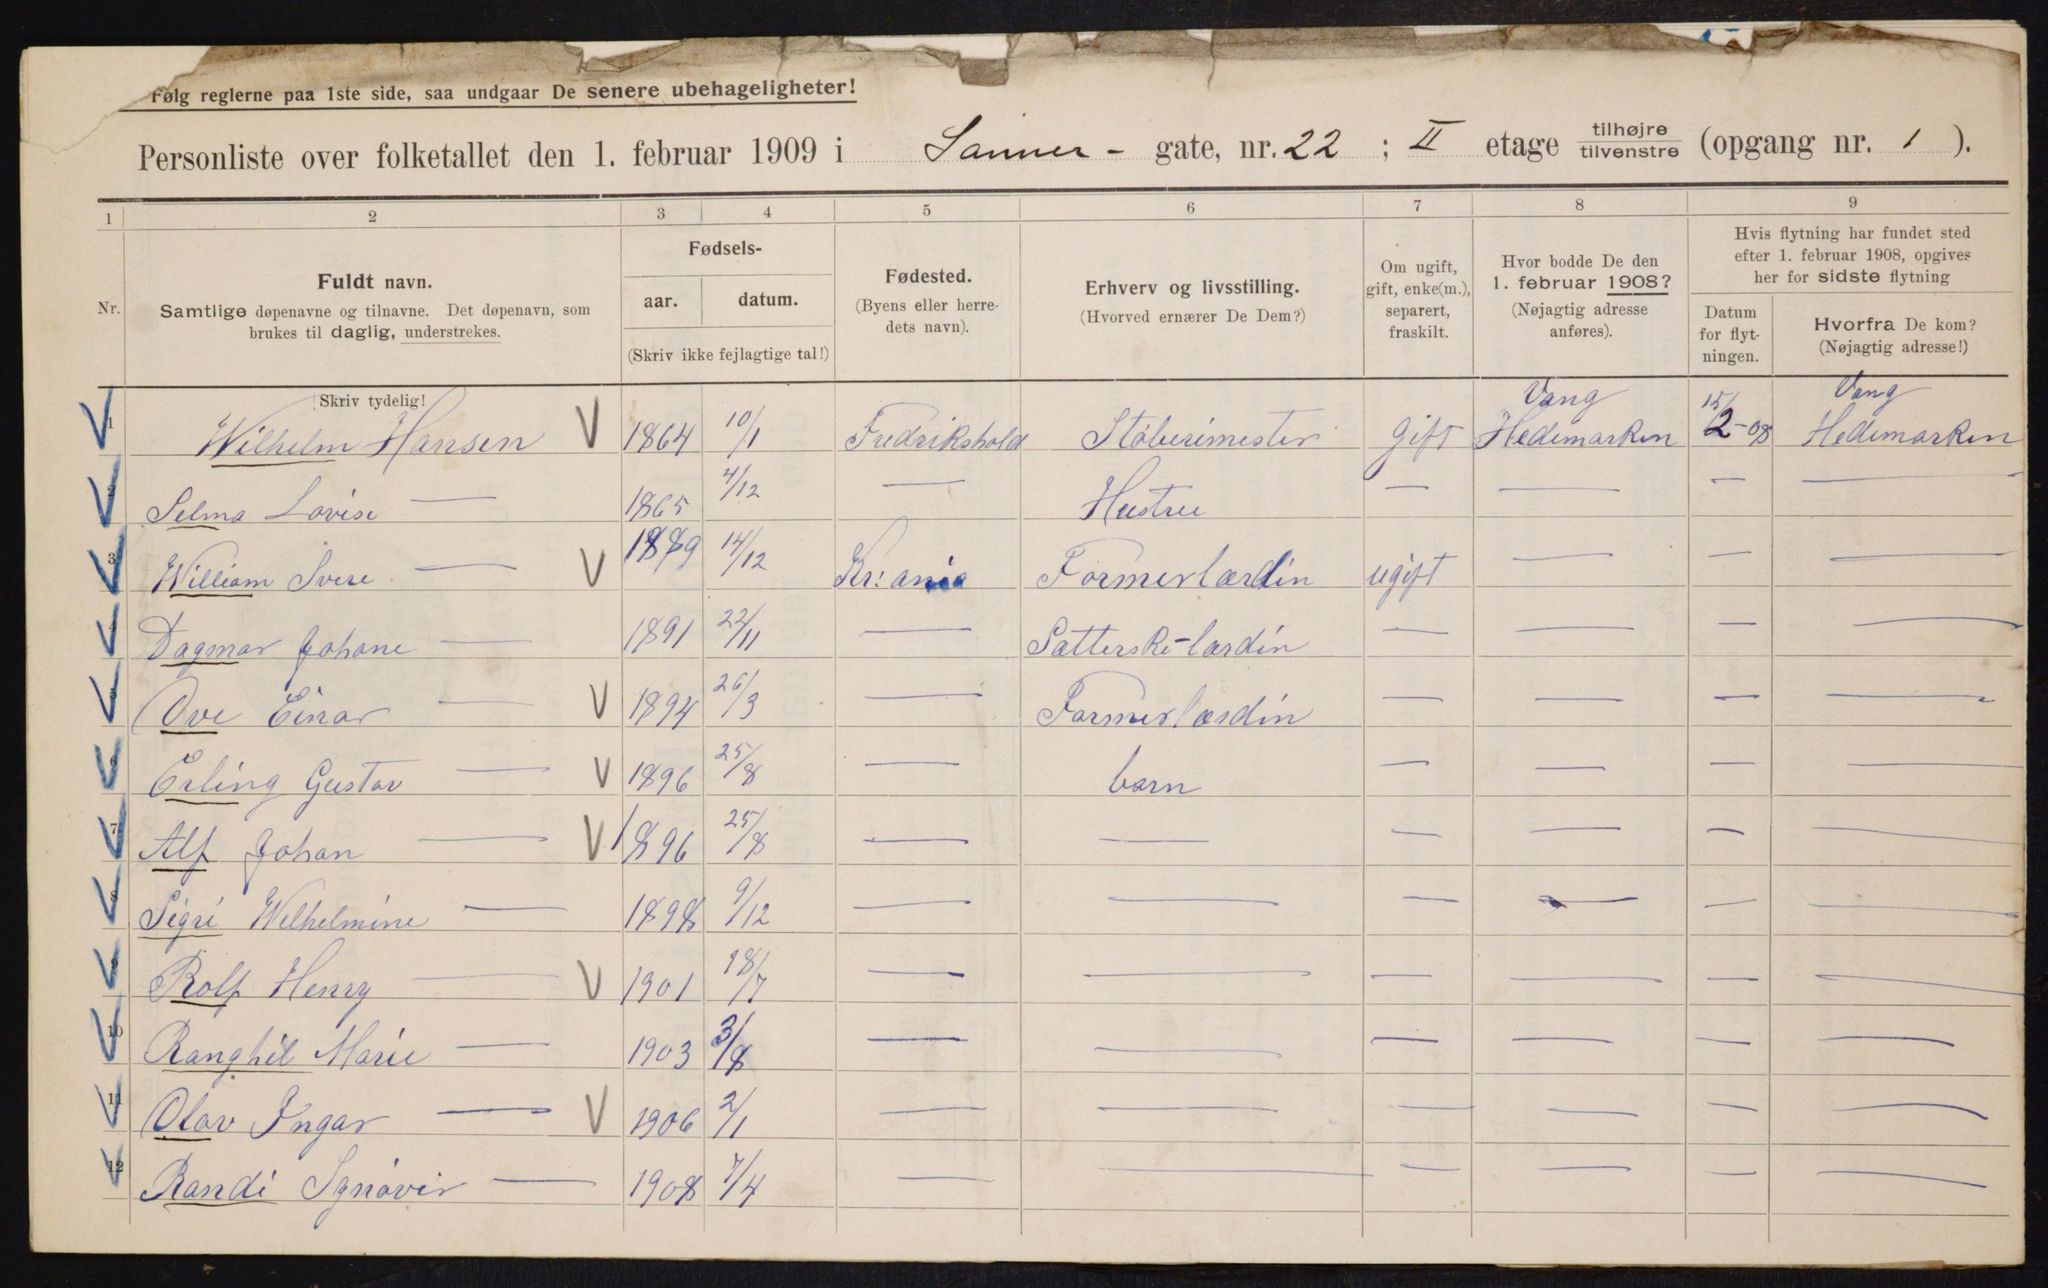 Følg reglerne paa 1ste side, saa undgaar De senere ubehageligheter!
Personliste over folketallet den 1. februar 1909 i Sanner - gate, nr. 22 ; II etage tilhøjre / tilvenstre (opgang nr. 1 ).
1 2 3 4 5 6 7 8 9
Nr. Fuldt navn. Samtlige døpenavne og tilnavne. Det døpenavn, som brukes til daglig, understrekes. Skriv tydelig!
Fødsels- aar. datum. (Skriv ikke fejlagtige tal!)
Fødested. (Byens eller herredets navn).
Erhverv og livsstilling. (Hvorved ernærer De Dem?)
Om ugift, gift, enke(m.), separert, fraskilt.
Hvor bodde De den 1. februar 1908? (Nøjagtig adresse anføres).
Hvis flytning har fundet sted efter 1. februar 1908, opgives her for sidste flytning
Datum for flytningen. Hvorfra De kom? (Nøjagtig adresse!)
1 Wilhelm Hansen V 1864 10/1 Fredrikshold Støberimester Gift Vang Hedemarken 15/2-08 Vang Hedemarken
2 Selma Lovise — 1865 4/12 — Hustru — — — —
3 William Svere — V 1889 14/12 Kr:ania Formerlærdin ugift — — —
4 Dagmar Johane — 1891 22/11 — Sætterske-lærdin — — — —
5 Ove Einar — V 1894 26/3 — Formerlærdin — — — —
6 Erling Gustav — V 1896 25/8 — barn — — — —
7 Alf Johan — V 1896 25/8 — — — — — —
8 Sigri Wilhelmine — 1898 9/12 — — — — — —
9 Rolf Henry — V 1901 18/7 — — — — — —
10 Ranghil Marie — 1903 3/8 — — — — — —
11 Olav Ingar — V 1906 2/1 — — — — — —
12 Randi — 1908 7/4 — — — — — —